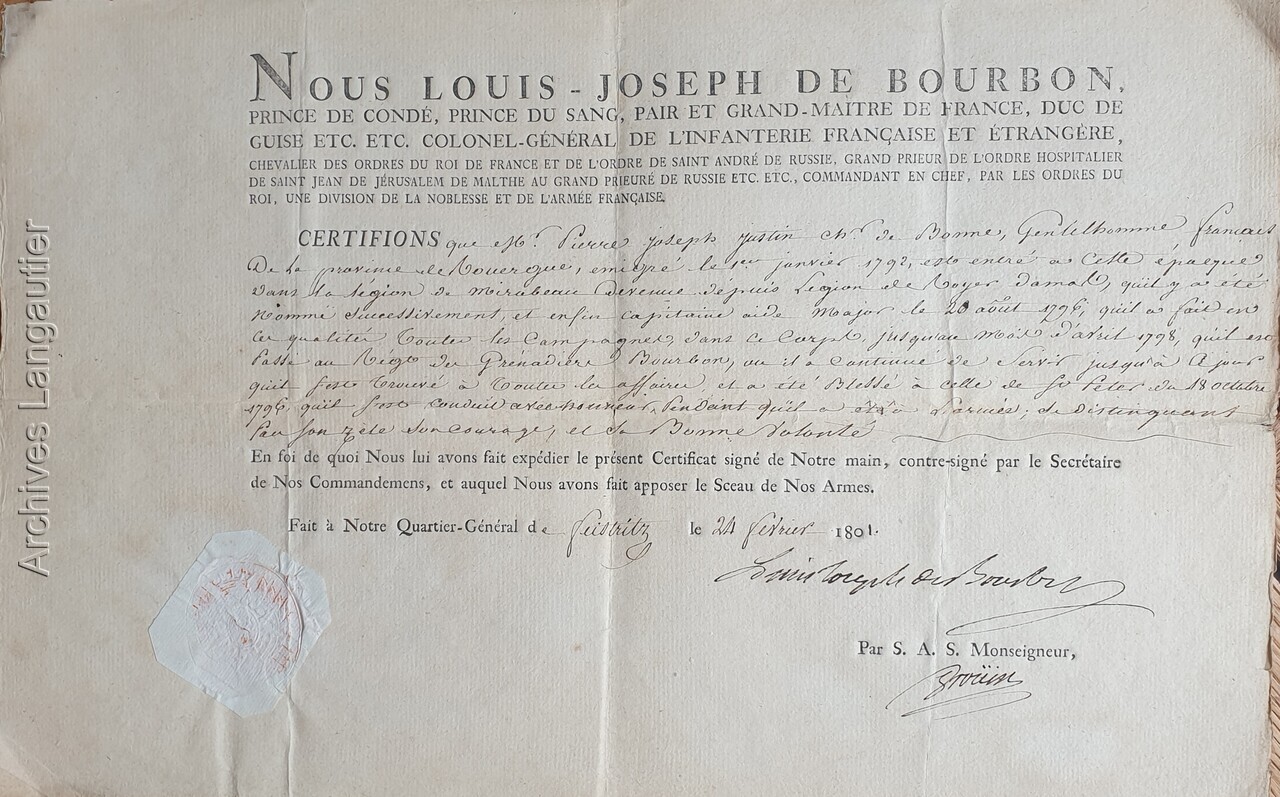 NOUS LOUIS-JOSEPH DE BOURBON,
PRINCE DE CONDÉ, PRINCE DU SANG, PAIR ET GRAND-MAITRE DE FRANCE, DUC DE
GUISE ETC. ETC. COLONEL-GÉNÉRAL DE L'INFANTERIE FRANÇAISE ET ÉTRANGÈRE,
CHEVALIER DES ORDRES DU ROI DE FRANCE ET DE L'ORDRE DE SAINT ANDRÉ DE RUSSIE, GRAND PRIEUR DE L'ORDRE HOSPITALIER
DE SAINT JEAN DE JÉRUSALEM DE MALTHE AU GRAND PRIEURÉ DE RUSSIE ETC. ETC., COMMANDANT EN CHEF, PAR LES ORDRES DU
ROI, UNE DIVISION DE LA NOBLESSE ET DE L'ARMÉE FRANÇAISE.
CERTIFIONS que Mr. Pierre joseph justin chr. de Bonne, Gentilhomme français
De la province de Rouergue, emigré le 1er janvier 1792, est entré a Cette époque
Dans la légion de Mirabeau devenue depuis Légion de Roger damas, qu'il y a été
Nommé Successivement, et enfin Capitaine aide Major le 20 août 1796, qu'il a fait en
Ces qualités Toutes les Campagnes dans ce Corps, jusqu'au Mois d'avril 1798, qu'il est
Passé au Régt. de Grénadiers Bourbon, ou il a continué de Servir jusqu'à Ce jour
qu'il s'est trouvé à toutes les affaires, et a été Blessé à celle de St. Peter du 18 octobre
1796, qu'il s'est conduit avec honneur, Pendant qu'il a été à l'armée; se distinguant
Par son zèle son courage, et sa Bonne Volonté
En foi de quoi Nous lui avons fait expédier le présent Certificat signé de Notre main, contre-signé par le Secrétaire
de Nos Commandemens, et auquel Nous avons fait apposer le Sceau de Nos Armes.
Fait à Notre Quartier-Général de Feistritz le 24 février 1801.
Louis Joseph de Bourbon
Par S. A. S. Monseigneur,
Drouin
Archives Langautier